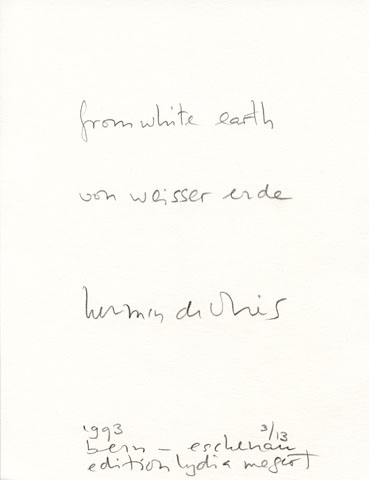 from white earth
von weisser erde
herman de vries
1993 3/13
bern – eschenau
edition lydia megert